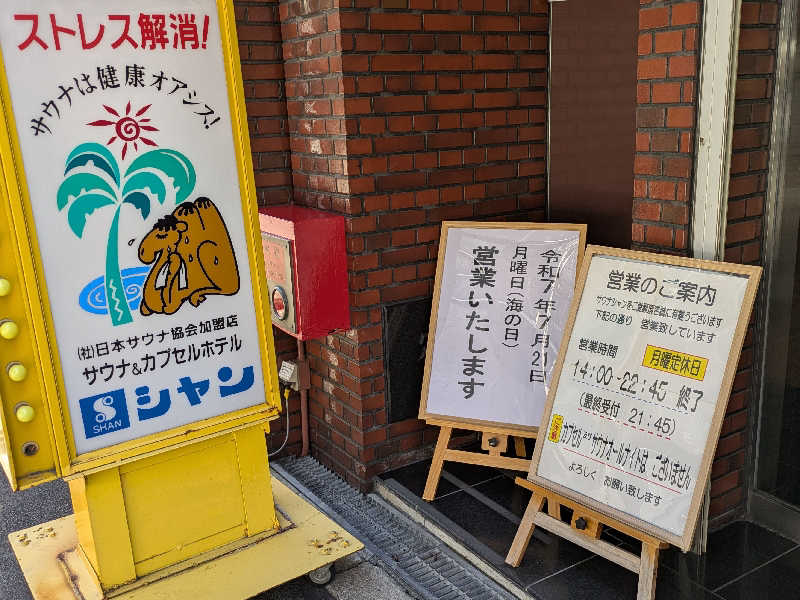 ストレス解消!
サウナは健康オアシス!
(社)日本サウナ協会加盟店
サウナ&カプセルホテル
SHAN
シャン
令和7年7月21日
月曜日(海の日)
営業いたします
営業のご案内
サウナシャンをご愛顧頂き誠に有難うございます
下記の通り 営業致しています
営業時間
月曜定休日
14:00-22:45 終了
(最終受付 21:45)
カプセル及びサウナオールナイトは ございません
よろしく お願い致します